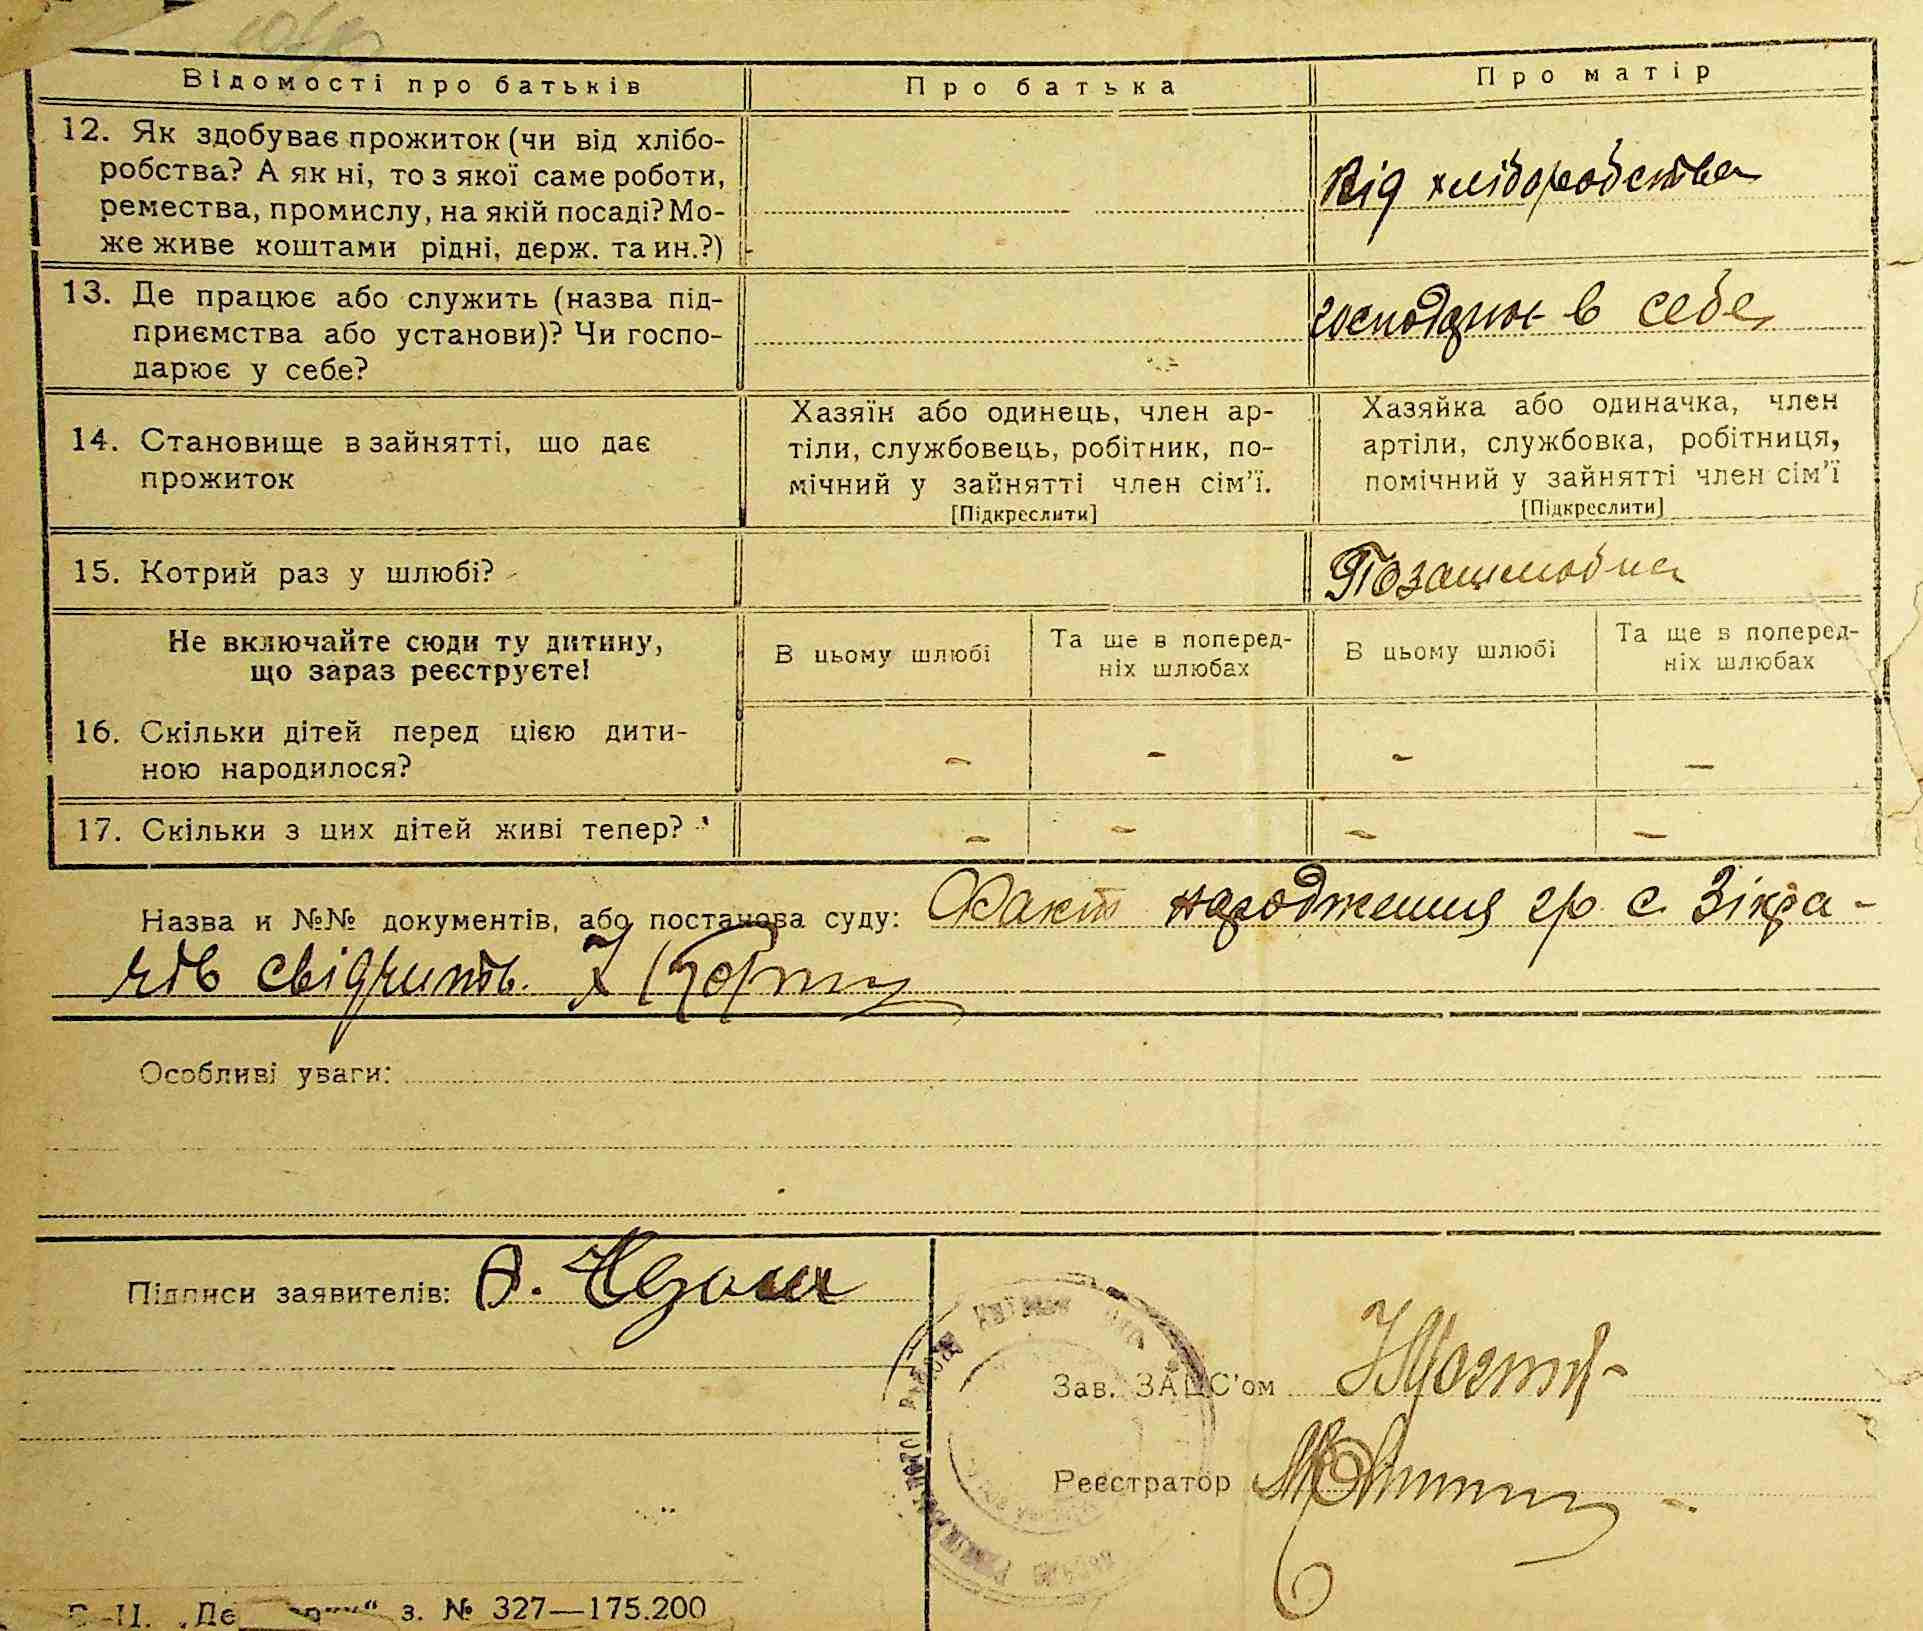 Відомості про батьків Про батька Про матір
12. Як здобуває прожиток (чи від хлібо-
робства? А як ні, то з якої саме роботи,
ремества, промислу, на якій посаді? Мо-
же живе коштами рідні, держ. та ин.?)
Від хліборобства
13. Де працює або служить (назва під-
приємства або установи)? Чи госпо-
дарює у себе?
в себе
14. Становище в зайнятті, що дає
прожиток
Хазяїн або одинець, член ар-
тіли, службовець, робітник, по-
мічний у зайнятті член сім'ї.
[Підкреслити]
Хазяйка або одиначка, член
артіли, службовка, робітниця,
помічний у зайнятті член сім'ї
[Підкреслити]
15. Котрий раз у шлюбі?
Позашлюбна
Не включайте сюди ту дитину,
що зараз реєструєте!
В цьому шлюбі
Та ще в поперед-
ніх шлюбах
В цьому шлюбі
Та ще в поперед-
ніх шлюбах
16. Скільки дітей перед цією дити-
ною народилося?
- - - -
17. Скільки з цих дітей живі тепер?
- - - -
Назва и №№ документів, або постанова суду: Факт народження гр. с. Зікра-
чів свідчить.
Особливі уваги:
Підписи заявителів: А.
Зав. ЗАЦС'ом
Реєстратор
з. № 327—175.200